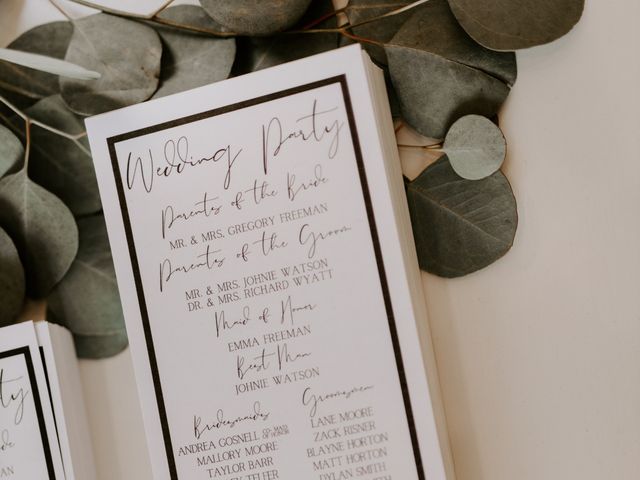 Wedding Party
Parents of the Bride
MR. & MRS. GREGORY FREEMAN
Parents of the Groom
MR. & MRS. JOHNIE WATSON
DR. & MRS. RICHARD WYATT
Maid of Honor
EMMA FREEMAN
Best Man
JOHNIE WATSON
Bridesmaids
ANDREA GOSNELL CO-MAID OF HONOR
MALLORY MOORE
TAYLOR BARR
TELLER
Groomsmen
LANE MOORE
ZACK RISNER
BLAYNE HORTON
MATT HORTON
DYLAN SMITH
ty
de
AN